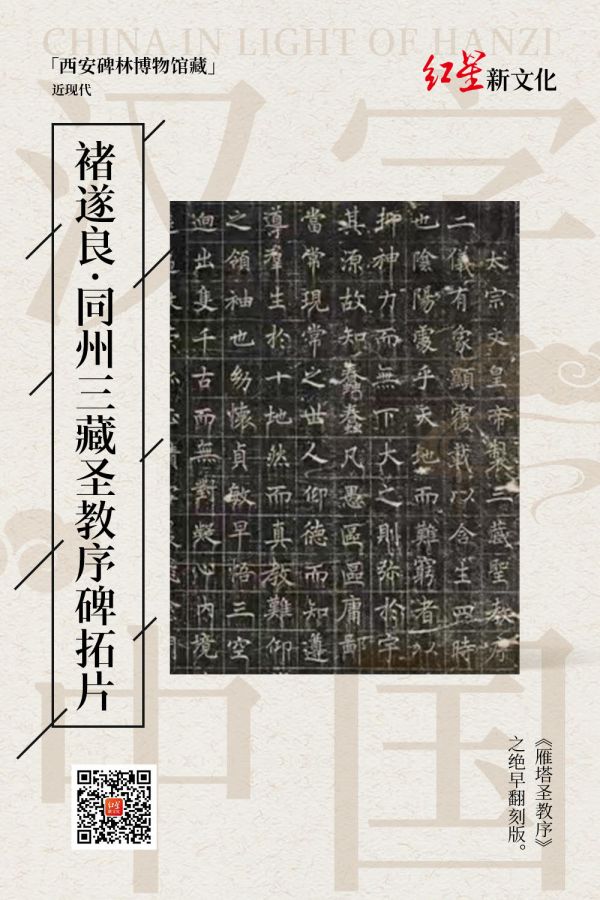 CHINA IN LIGHT OF HANZI
汉字
中国
「西安碑林博物馆藏」
近现代
红星新文化
褚遂良·同州三藏圣教序碑拓片
太宗文皇帝製三藏聖教序
二儀有象顯覆載以含生四時
也陰陽處乎天地而難窮者以
抑神力而無下大之則弥於宇
其源故知蠢蠢凡愚區區庸鄙
當常現常之世人仰德而知遵
導羣生於十地然而真教難仰
之領袖也幼懷貞敏早悟三空
迥出隻千古而無對凝心內境
《雁塔圣教序》
之绝早翻刻版。
红星